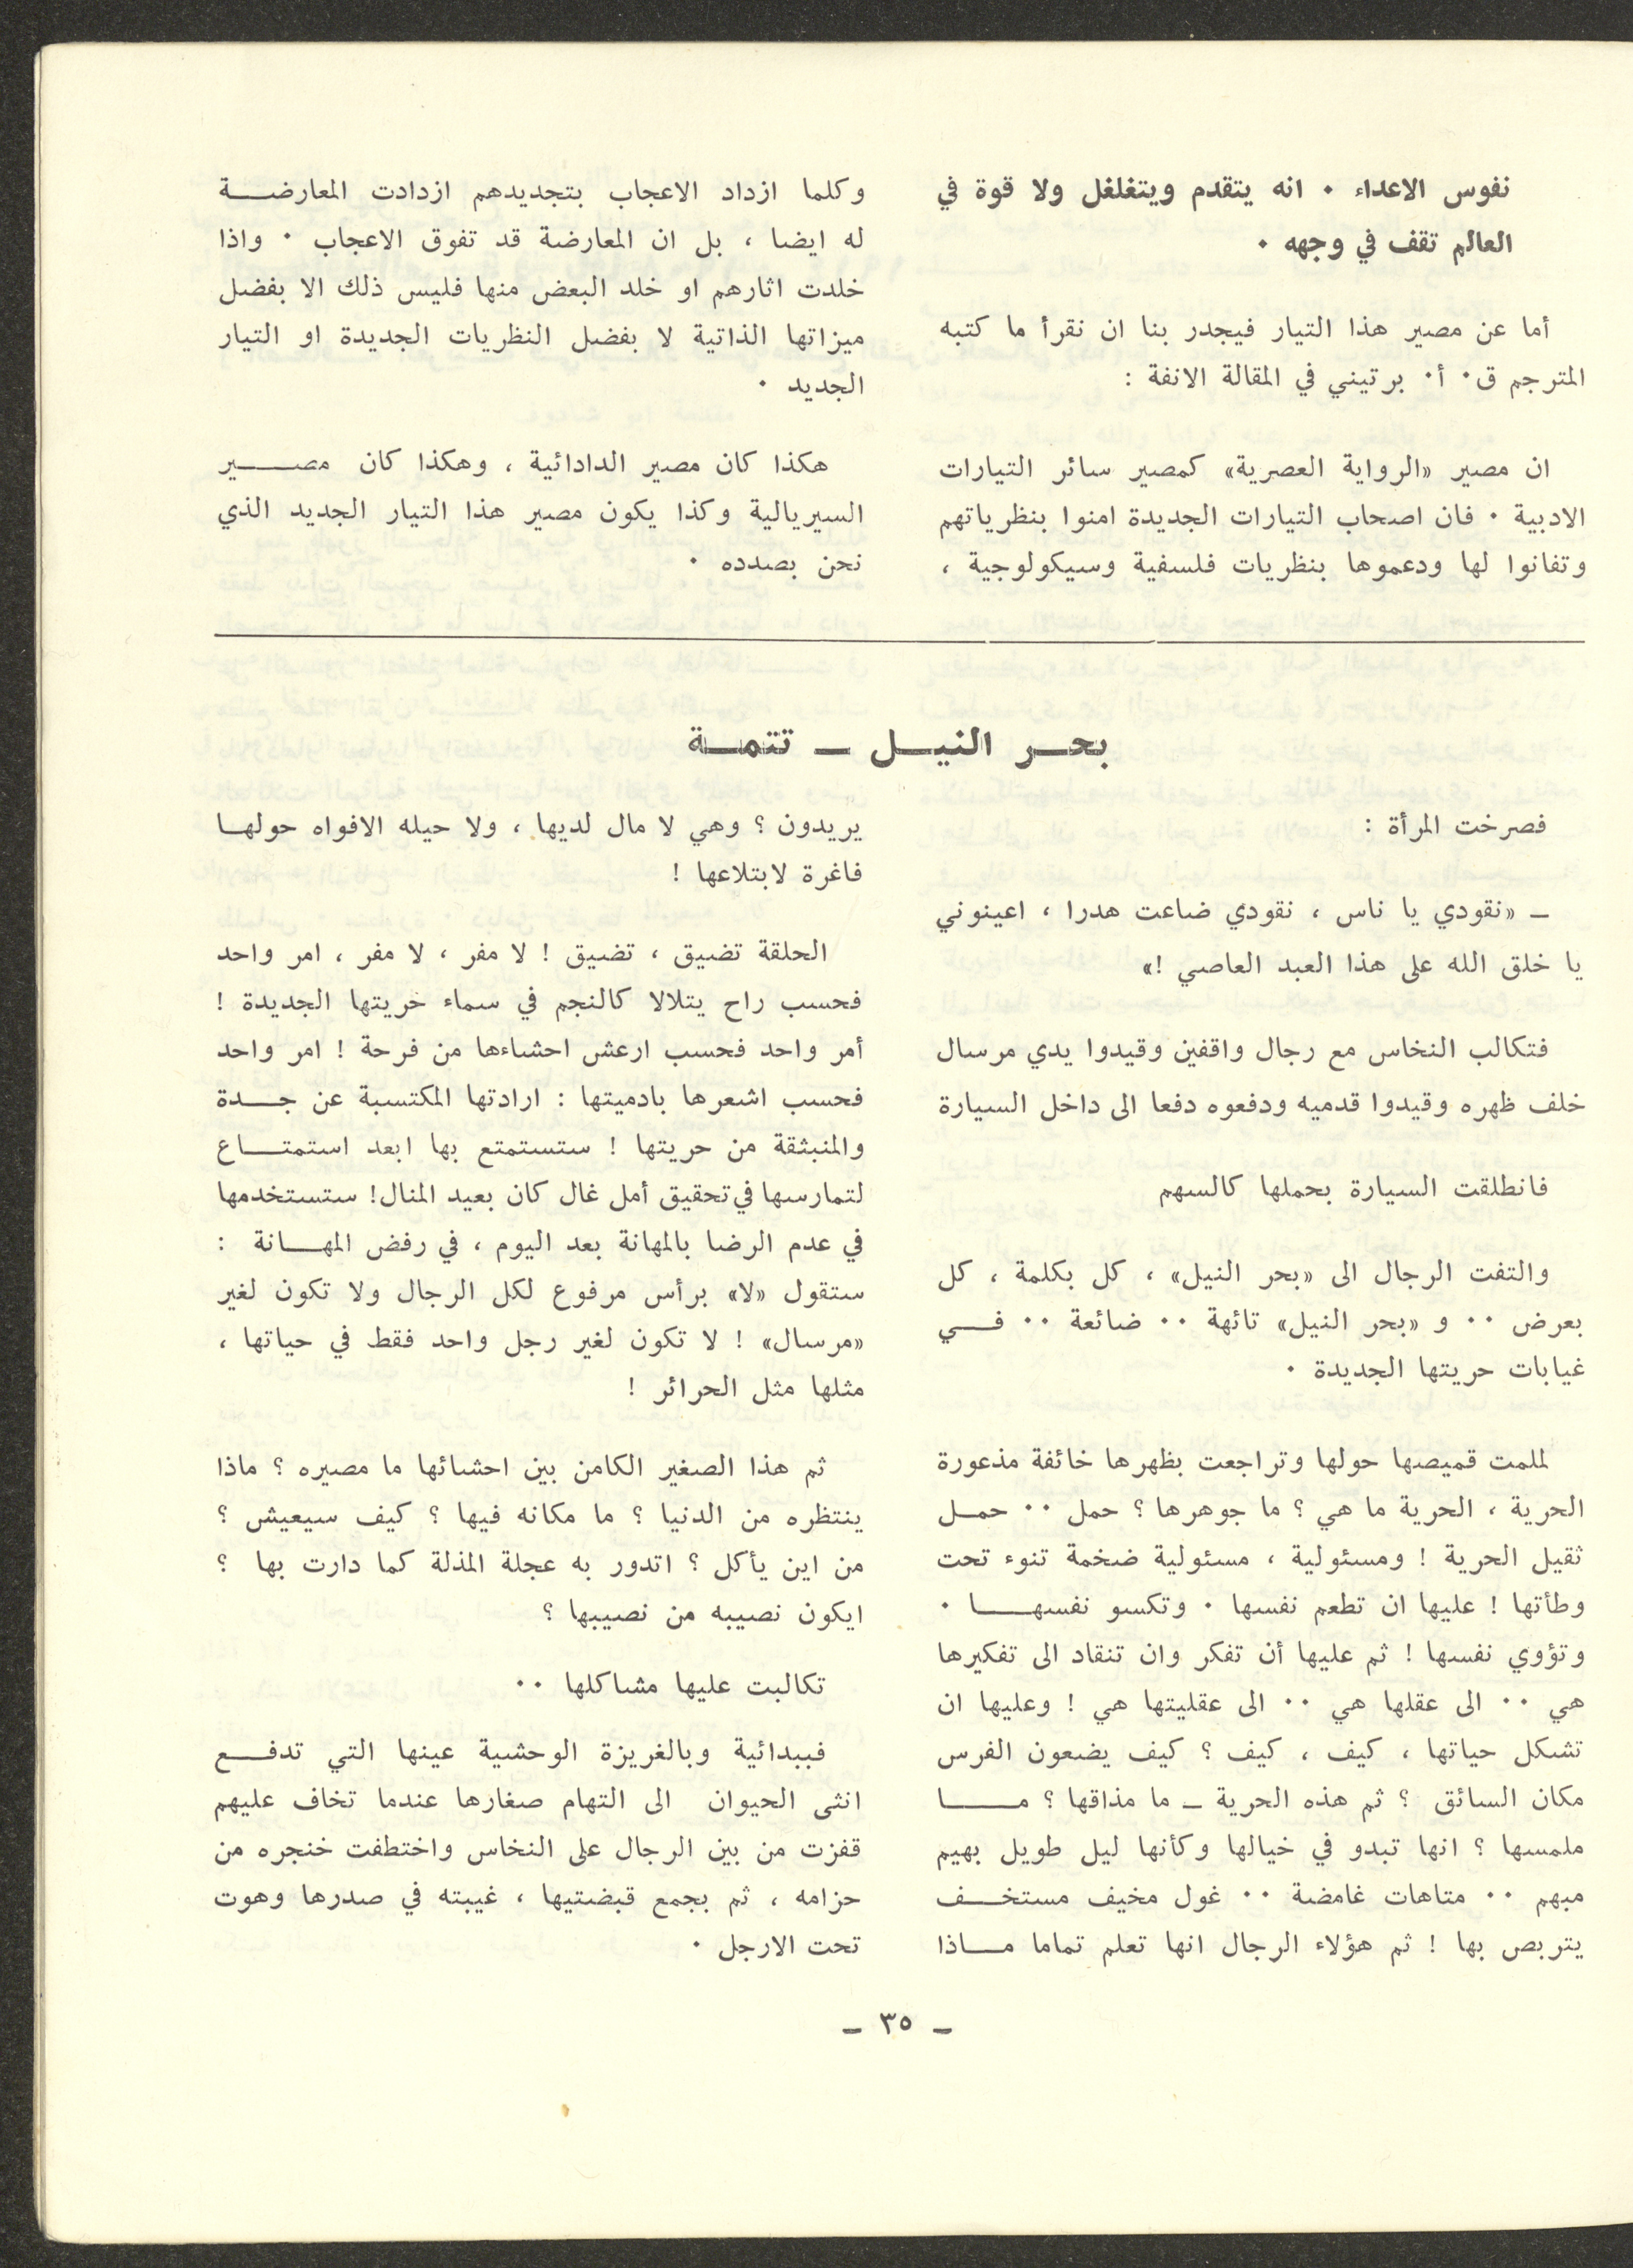 نفوس الاعداء ٠ انه يتقدم ويتغلغل ولا قوة في
العالم تقف في وجهه ٠
أما عن مصير هذا التيار فيجدر بنا ان نقرأ ما كتبه
المترجم ق٠ أ٠ برتيني في المقالة الانفة :
ان مصير «الرواية العصرية» كمصير سائر التيارات
الادبية ٠ فان اصحاب التيارات الجديدة امنوا بنظرياتهم
وتفانوا لها ودعموها بنظريات فلسفية وسيكولوجية ،
وكلما ازداد الاعجاب بتجديدهم ازدادت المعارضة
له ايضا ، بل ان المعارضة قد تفوق الاعجاب ٠ واذا
خلدت اثارهم او خلد البعض منها فليس ذلك الا بفضل
ميزاتها الذاتية لا بفضل النظريات الجديدة او التيار
الجديد ٠
هكذا كان مصير الدادائية ، وهكذا كان مصير
السيريالية وكذا يكون مصير هذا التيار الجديد الذي
نحن بصدده ٠
بحر النيل ــ تتمة
فصرخت المرأة :
ــ «نقودي يا ناس ، نقودي ضاعت هدرا ، اعينوني
يا خلق الله على هذا العبد العاصي !»
فتكالب النخاس مع رجال واقفين وقيدوا يدي مرسال
خلف ظهره وقيدوا قدميه ودفعوه دفعا الى داخل السيارة
فانطلقت السيارة بحملها كالسهم
والتفت الرجال الى «بحر النيل» ، كل بكلمة ، كل
بعرض ٠٠ و «بحر النيل» تائهة ٠٠ ضائعة ٠٠ في
غيابات حريتها الجديدة ٠
لملمت قميصها حولها وتراجعت بظهرها خائفة مذعورة
الحرية ، الحرية ما هي ؟ ما جوهرها ؟ حمل ٠٠ حمل
ثقيل الحرية ! ومسئولية ، مسئولية ضخمة تنوء تحت
وطأتها ! عليها ان تطعم نفسها ٠ وتكسو نفسها ٠
وتؤوي نفسها ! ثم عليها أن تفكر وان تنقاد الى تفكيرها
هي ٠٠ الى عقلها هي ٠٠ الى عقليتها هي ! وعليها ان
تشكل حياتها ، كيف ، كيف ؟ كيف يضعون الفرس
مكان السائق ؟ ثم هذه الحرية ــ ما مذاقها ؟ ما
ملمسها ؟ انها تبدو في خيالها وكأنها ليل طويل بهيم
مبهم ٠٠ متاهات غامضة ٠٠ غول مخيف مستخف
يتربص بها ! ثم هؤلاء الرجال انها تعلم تماما ماذا
يريدون ؟ وهي لا مال لديها ، ولا حيله الافواه حولها
فاغرة لابتلاعها !
الحلقة تضيق ، تضيق ! لا مفر ، لا مفر ، امر واحد
فحسب راح يتلالا كالنجم في سماء حريتها الجديدة !
أمر واحد فحسب ارعش احشاءها من فرحة ! امر واحد
فحسب اشعرها بادميتها : ارادتها المكتسبة عن جدة
والمنبثقة من حريتها ! ستستمتع بها ابعد استمتاع
لتمارسها في تحقيق أمل غال كان بعيد المنال! ستستخدمها
في عدم الرضا بالمهانة بعد اليوم ، في رفض المهانة :
ستقول «لا» برأس مرفوع لكل الرجال ولا تكون لغير
«مرسال» ! لا تكون لغير رجل واحد فقط في حياتها ،
مثلها مثل الحرائر !
ثم هذا الصغير الكامن بين احشائها ما مصيره ؟ ماذا
ينتظره من الدنيا ؟ ما مكانه فيها ؟ كيف سيعيش ؟
من اين يأكل ؟ اتدور به عجلة المذلة كما دارت بها ؟
ايكون نصيبه من نصيبها ؟
تكالبت عليها مشاكلها ٠٠
فببدائية وبالغريزة الوحشية عينها التي تدفع
انثى الحيوان الى التهام صغارها عندما تخاف عليهم
قفزت من بين الرجال على النخاس واختطفت خنجره من
حزامه ، ثم بجمع قبضتيها ، غيبته في صدرها وهوت
تحت الارجل ٠
ــ ٣٥ ــ